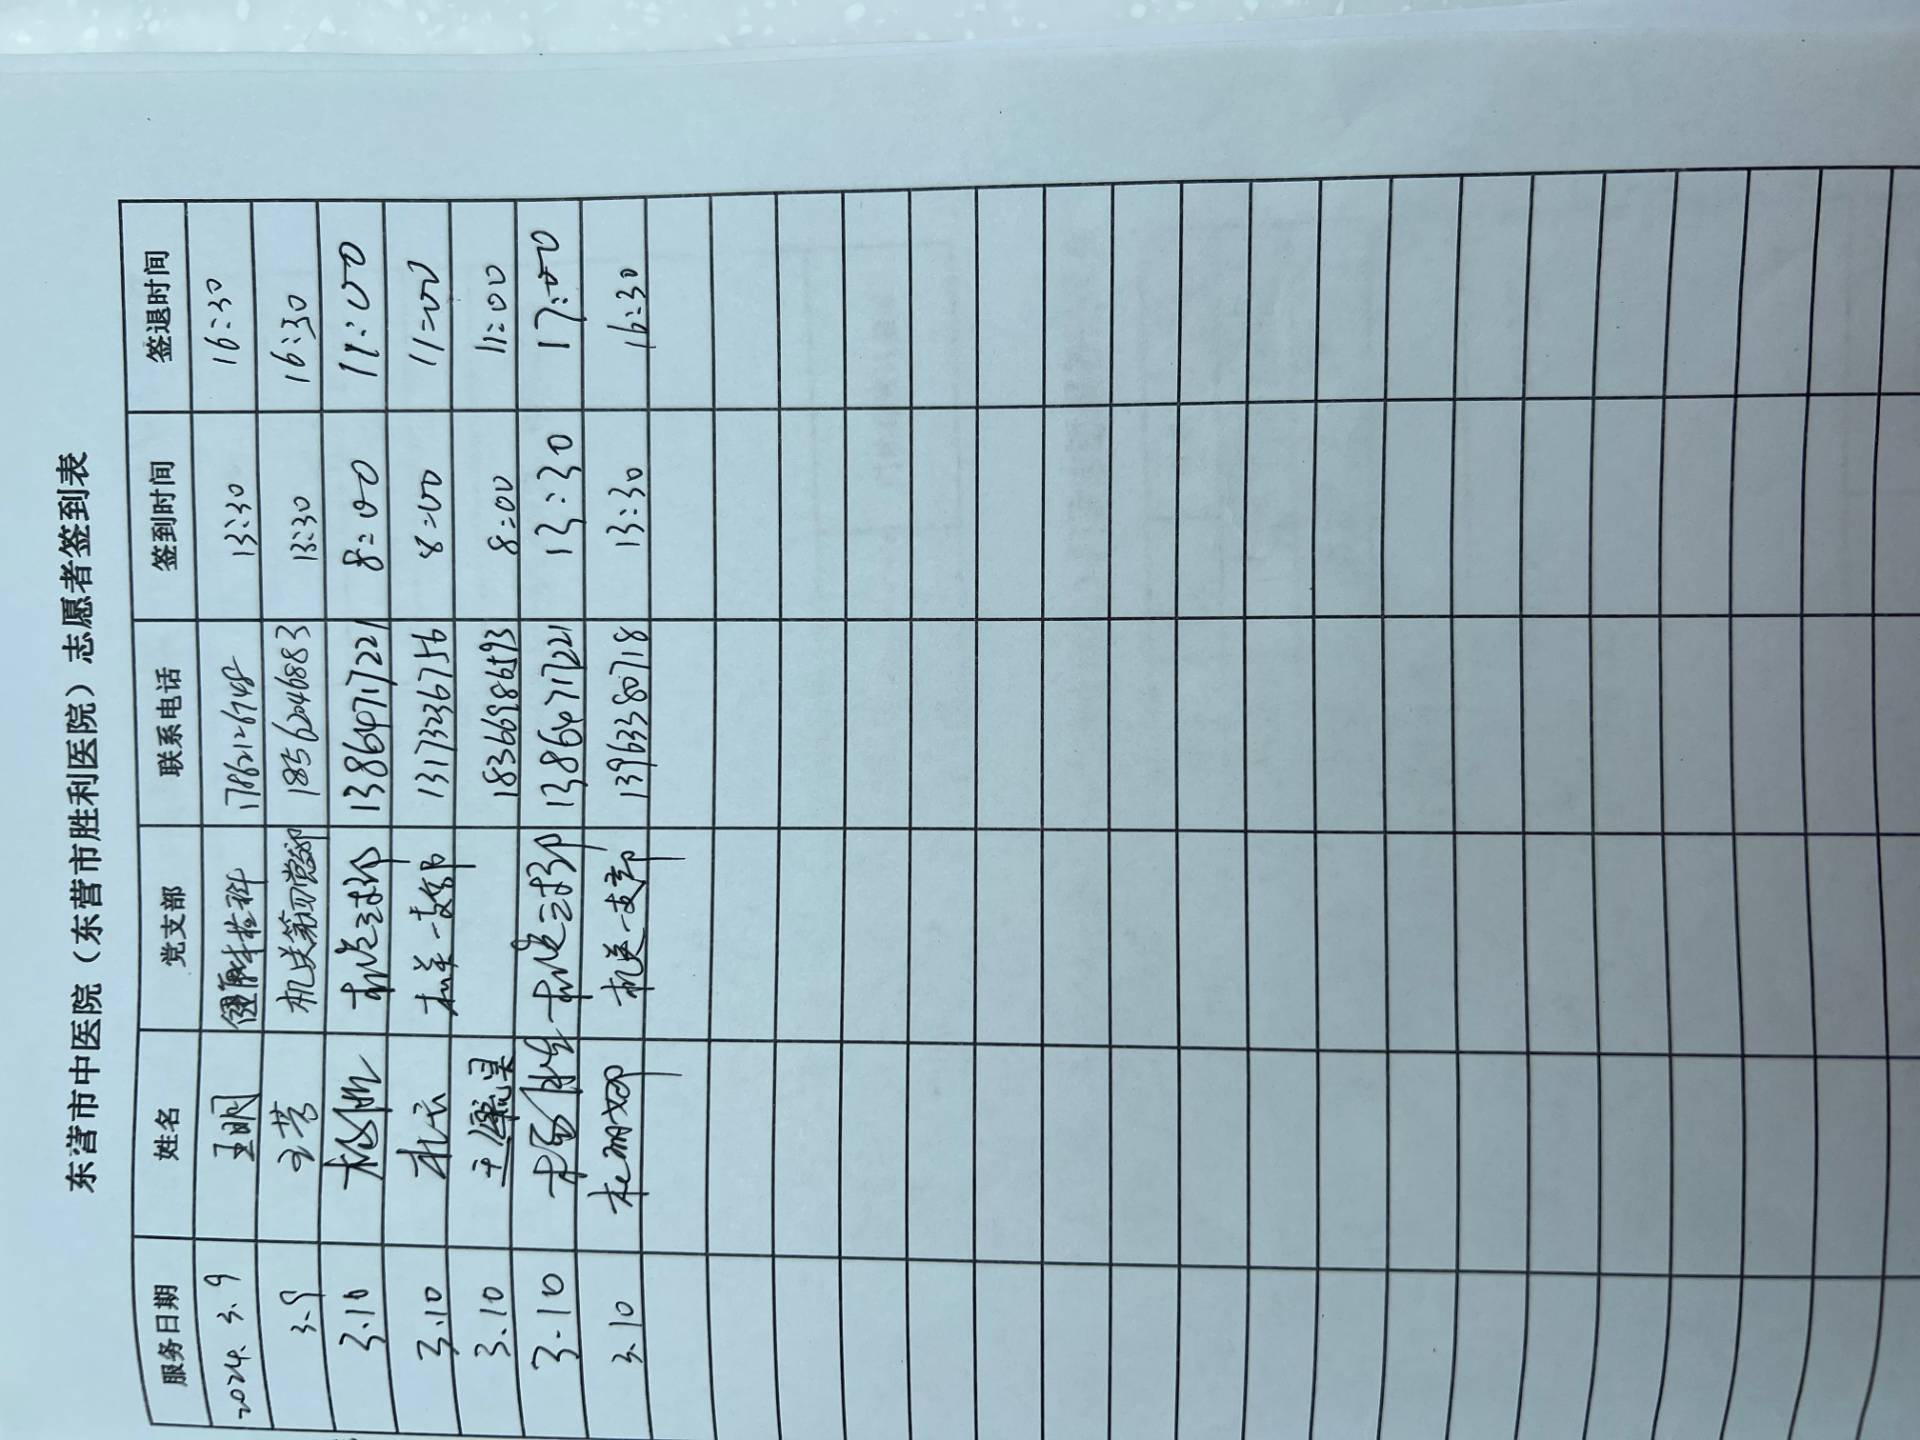 东营市中医院（东营市胜利医院）志愿者签到表
服务日期 姓名 党支部 联系电话 签到时间 签退时间
2024.3.9 王明 健康体检科 17862126748 13:30 16:30
3.9 王芳 机关第四党支部 18562046883 13:30 16:30
3.10 13864717221 8:00 11:00
3.10 杜云 机关一支部 13173236756 8:00 11:00
3.10 18366986593 8:00 11:00
3.10 13864717221 13:30 17:00
3.10 机关一支部 13963380718 13:30 16:30